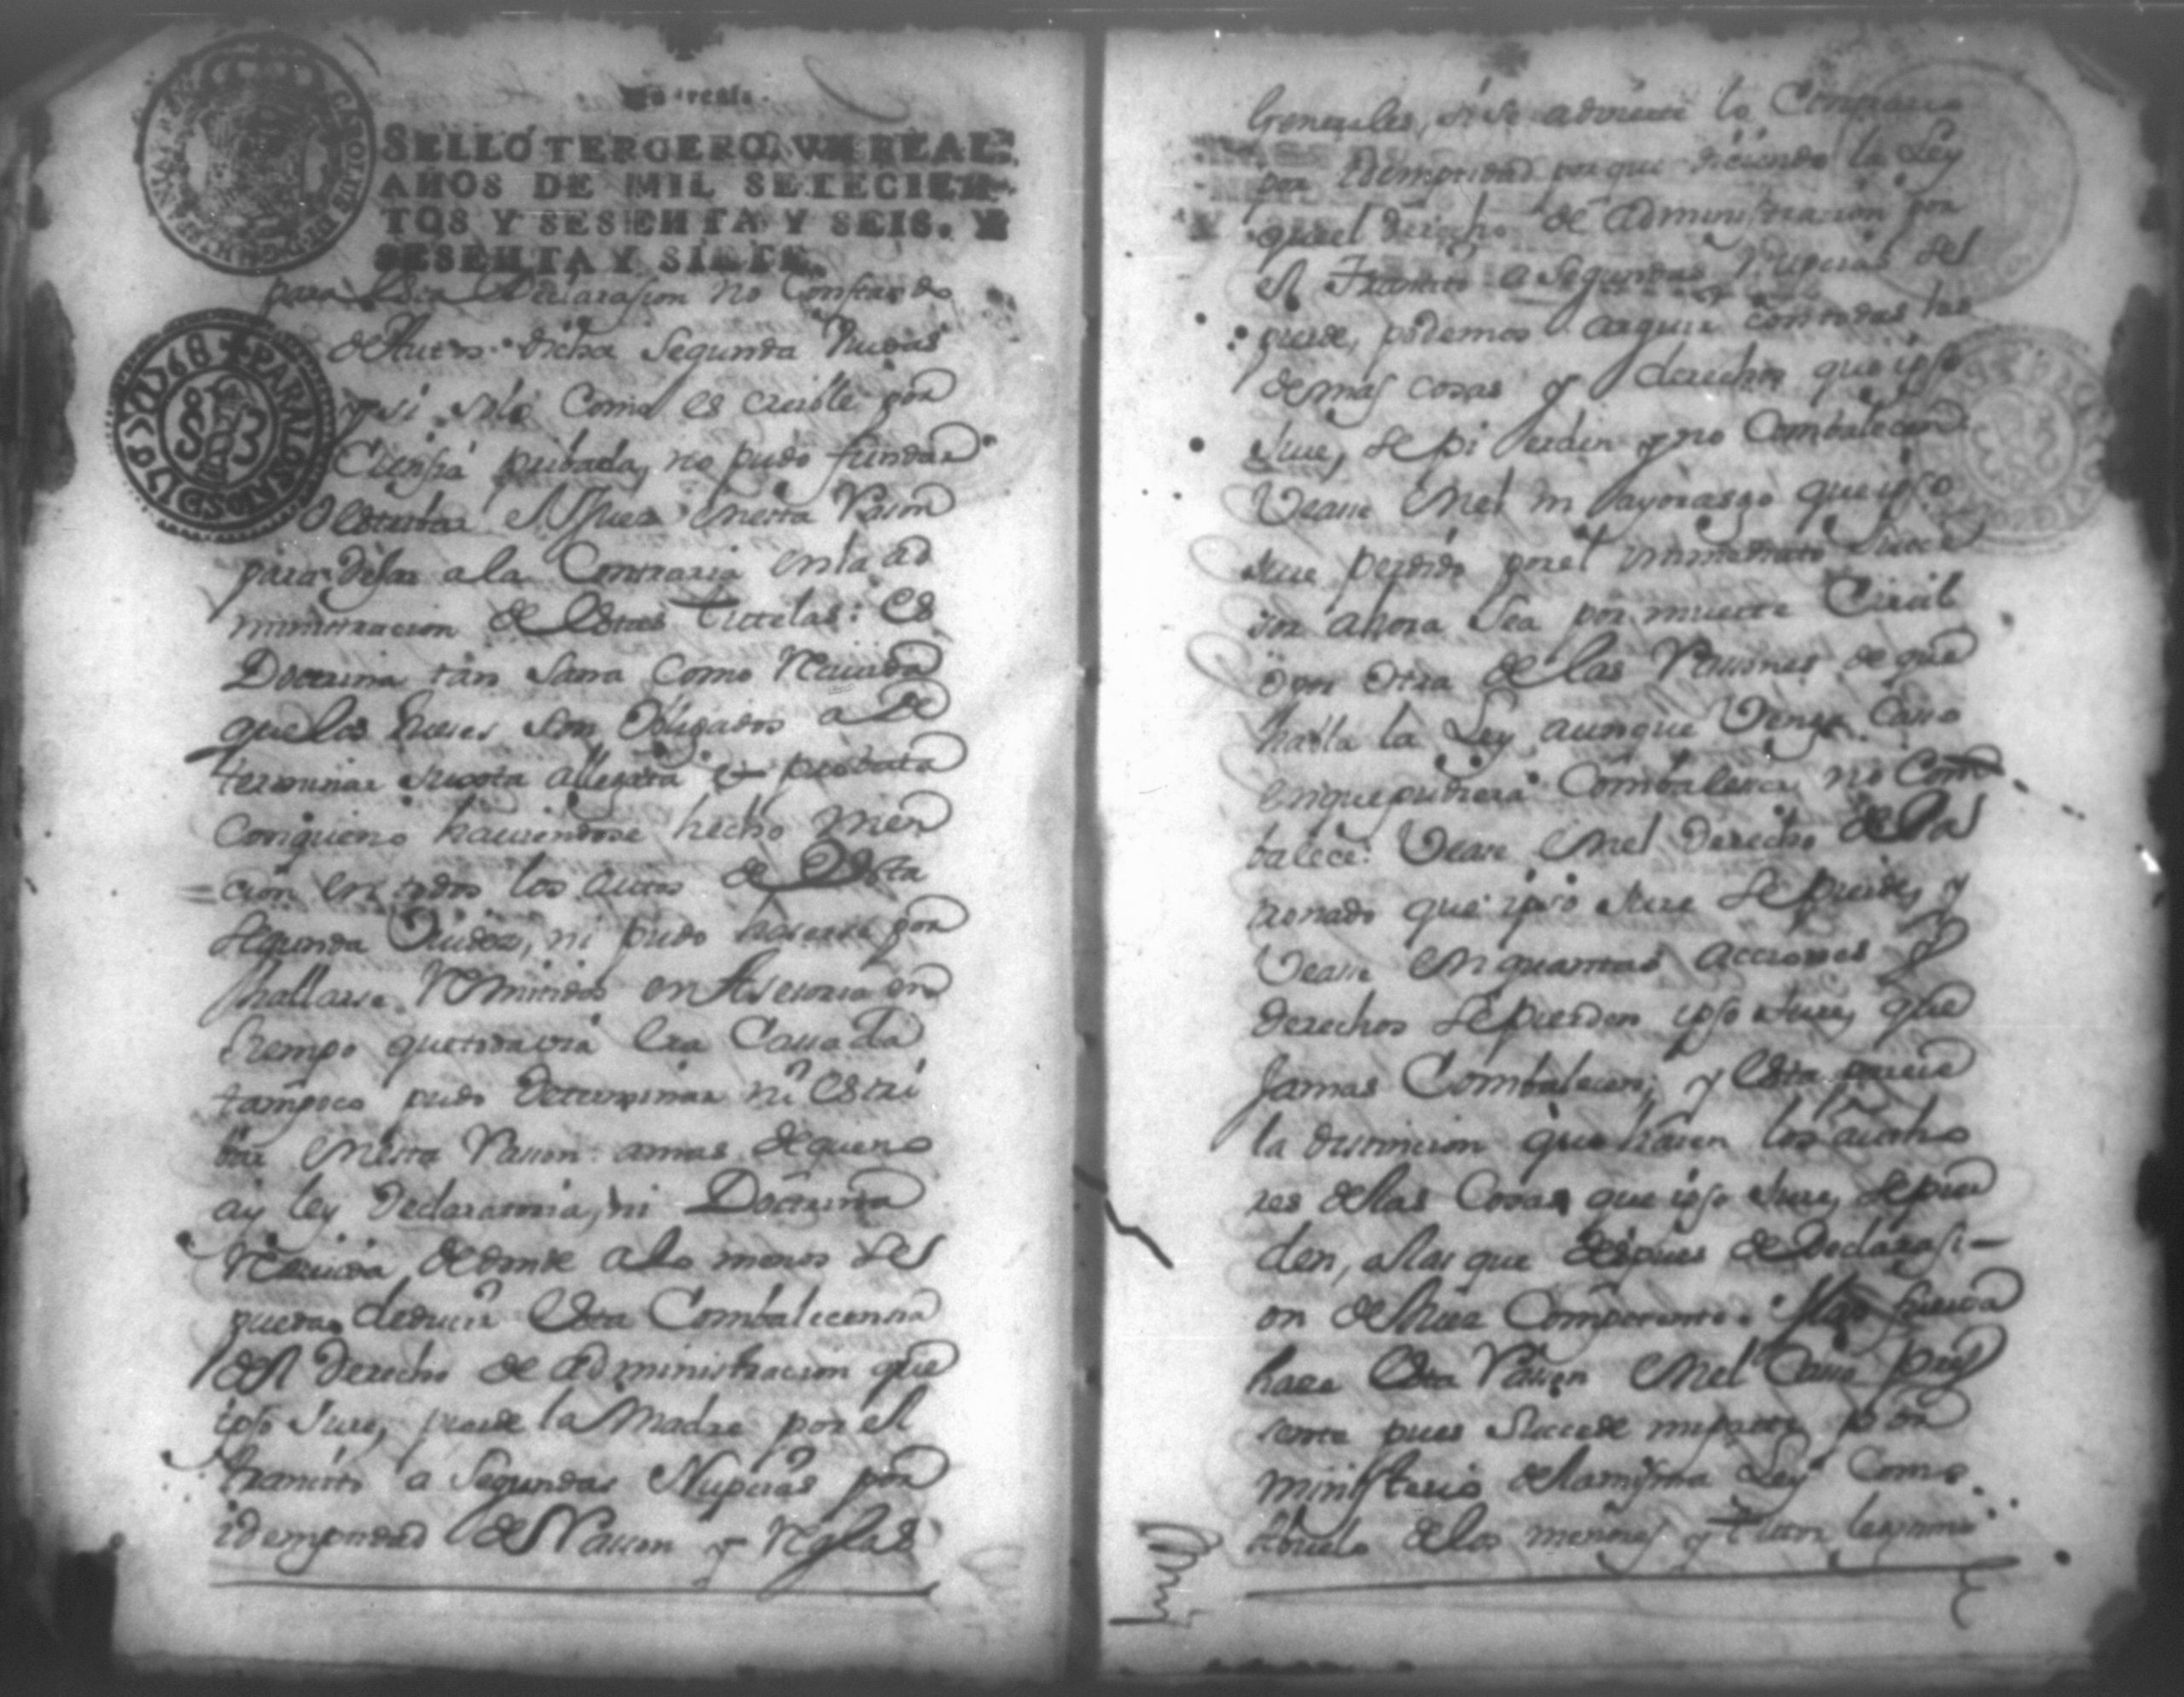 Un real.
SELLO TERCERO, VN REAL,
AÑOS DE MIL SETECIEN-
TOS Y SESENTA Y SEIS, Y
SESENTA Y SIETE.
CAROLUS
1768 PARA LOS AÑOS D
para esta Declarasion no Constando
de Autos dicha Segunda Viudas
y si solo como es creible por
Ciensia pribada, no pudo fundar
el Juez en esta Rason
para dejar a la Contraria en la ad
ministracion de estas tutelas: es
Doctrina tan sana como Reciuida
que los Jueses son obligados a De
terminar juxta allegata et probata
Conque no hauiendose hecho men
cion en todos los autos de esta
Segunda Viudez, ni pudo haserse por
hallarse Remitidos en Asesoria en
tiempo que todavia era Casada
tampoco pudo determinar ni estri
bar en esta Rason: amas de que no
ay ley declaratoria, ni Doctrina
Reciuida de donde a lo menos se
pueda deducir esta Combalecensia
del derecho de administracion que
ipso Jure, pierde la Madre por el
transito a Segundas Nupcias por
idemptidad de Rason y Reglas
Generales, si se admite lo Contrario
por idemptidad porque diciendo la Ley
que el derecho de administracion por
el transito a Segundas Nupcias se
pierde, podemos arguir con todas las
demas cosas y derechos que ipso
Jure, se pierden y no Combalecen
Vease en el mayorasgo que ipso
Jure perdido por el immediato Suce
sor ahora sea por muerte Ciuil
o por otra de las Rasones de que
habla la Ley, aunque Venga Caso
en que pudiera Combalecer no Com
balece: Vease en el derecho de Pa
tronado que ipso Jure se pierde, y
Vease en quantas acciones y
derechos se pierden ipso Jure, que
Jamas Combalecen; y esta parece
la distincion que hasen los autho
res de las Cosas que ipso Jure, se pier
den, a las que despues de Declarasi-
on de Juez Competente. Mas fuersa
hase esta Rason en el Caso pre
sente pues Sucede mi parte por
ministerio de la misma Ley Como
Abuelo de los menores y tutor legitimo